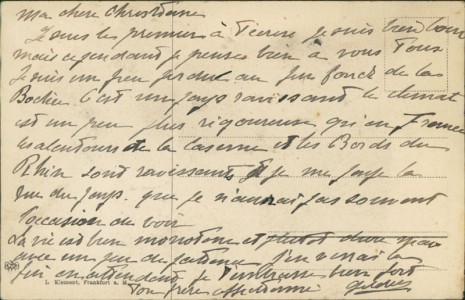 ma chere Christiane
Tous les premiers à écrire je suis bien
mais cependant je penses bien à vous Tous
Je suis un peu perdue au fin fond de la
Bochie C'est un pays ravissant le climat
est un peu plus rigoureuse qu'en France
les alentours de la caserne et les Bords du
Rhin sont ravissants et je me paye la
vue du pays que je n'aurai pas souvent
l'occasion de voir
La vie est bien monotone et plutot dure mais
avec un peu de patience j'en verrai la
fin en attendant je t'embrasse bien fort
L. Klement, Frankfurt a. M.
Ton frère affectionné